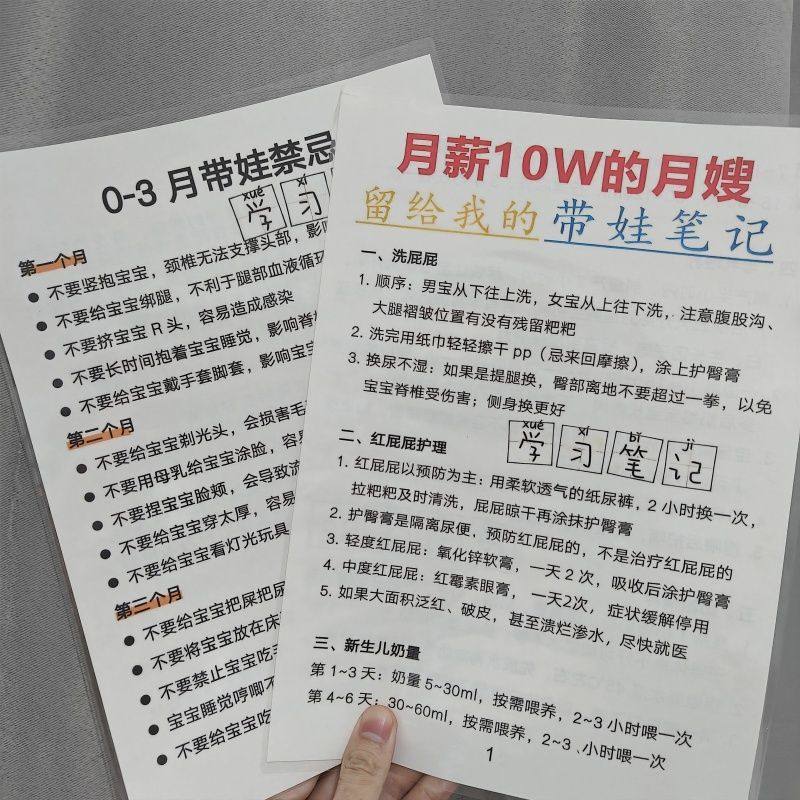 0-3月带娃禁忌
xué xí
学习
第一个月
● 不要竖抱宝宝，颈椎无法支撑头部，影
● 不要给宝宝绑腿，不利于腿部血液循环
● 不要挤宝宝R头，容易造成感染
● 不要长时间抱着宝宝睡觉，影响脊
● 不要给宝宝戴手套脚套，影响宝宝
第二个月
● 不要给宝宝剃光头，会损害毛
● 不要用母乳给宝宝涂脸，容易
● 不要捏宝宝脸颊，会导致流
● 不要给宝宝穿太厚，容易
● 不要给宝宝看灯光玩具
第三个月
● 不要给宝宝把屎把尿
● 不要将宝宝放在床
● 不要禁止宝宝吃
● 宝宝睡觉哼唧不
● 不要给宝宝吃
月薪10W的月嫂
留给我的带娃笔记
一、洗屁屁
1. 顺序：男宝从下往上洗，女宝从上往下洗，注意腹股沟、
大腿褶皱位置有没有残留粑粑
2. 洗完用纸巾轻轻擦干pp（忌来回摩擦），涂上护臀膏
3. 换尿不湿：如果是提腿换，臀部离地不要超过一拳，以免
宝宝脊椎受伤害；侧身换更好
xué xí bǐ jì
学习笔记
二、红屁屁护理
1. 红屁屁以预防为主：用柔软透气的纸尿裤，2小时换一次，
拉粑粑及时清洗，屁屁晾干再涂抹护臀膏
2. 护臀膏是隔离尿便，预防红屁屁的，不是治疗红屁屁的
3. 轻度红屁屁：氧化锌软膏，一天2次，吸收后涂护臀膏
4. 中度红屁屁：红霉素眼膏，一天2次，症状缓解停用
5. 如果大面积泛红、破皮，甚至溃烂渗水，尽快就医
三、新生儿奶量
第1~3天：奶量5~30ml，按需喂养，2~3小时喂一次
第4~6天：30~60ml，按需喂养，2~3小时喂一次
1